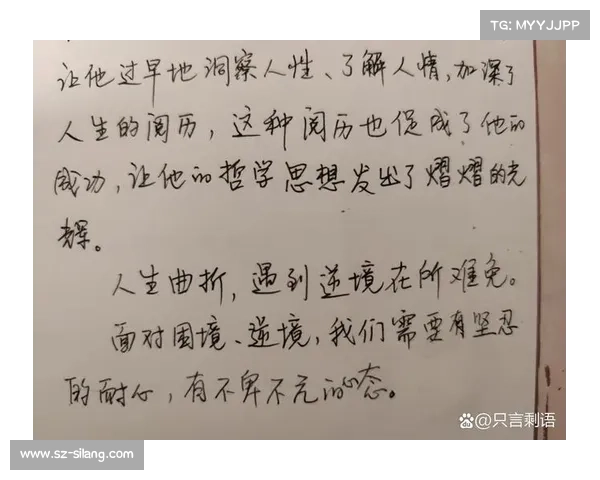 TG: MYYJJPP
让他过早地洞察人性、了解人情,加深了
人生的阅历，这种阅历也促成了他的
成功,让他的哲学思想发出了熠熠的光
辉。
人生曲折,遇到逆境在所难免。
面对困境、逆境,我们需要有坚忍
的耐心,有不卑不亢的心态。
Bai du @只言剩语
www.sz-silang.com